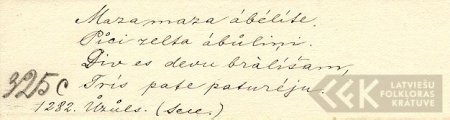 Maza maza ābēlīte.
Pīci zelta ābūliņi.
Div es devu brālišam,
Trīs pate paturēju.
325 c
1282. Ūzuls. (Sece.)
LATVIEŠU
FOLKLORAS
KRĀTUVE